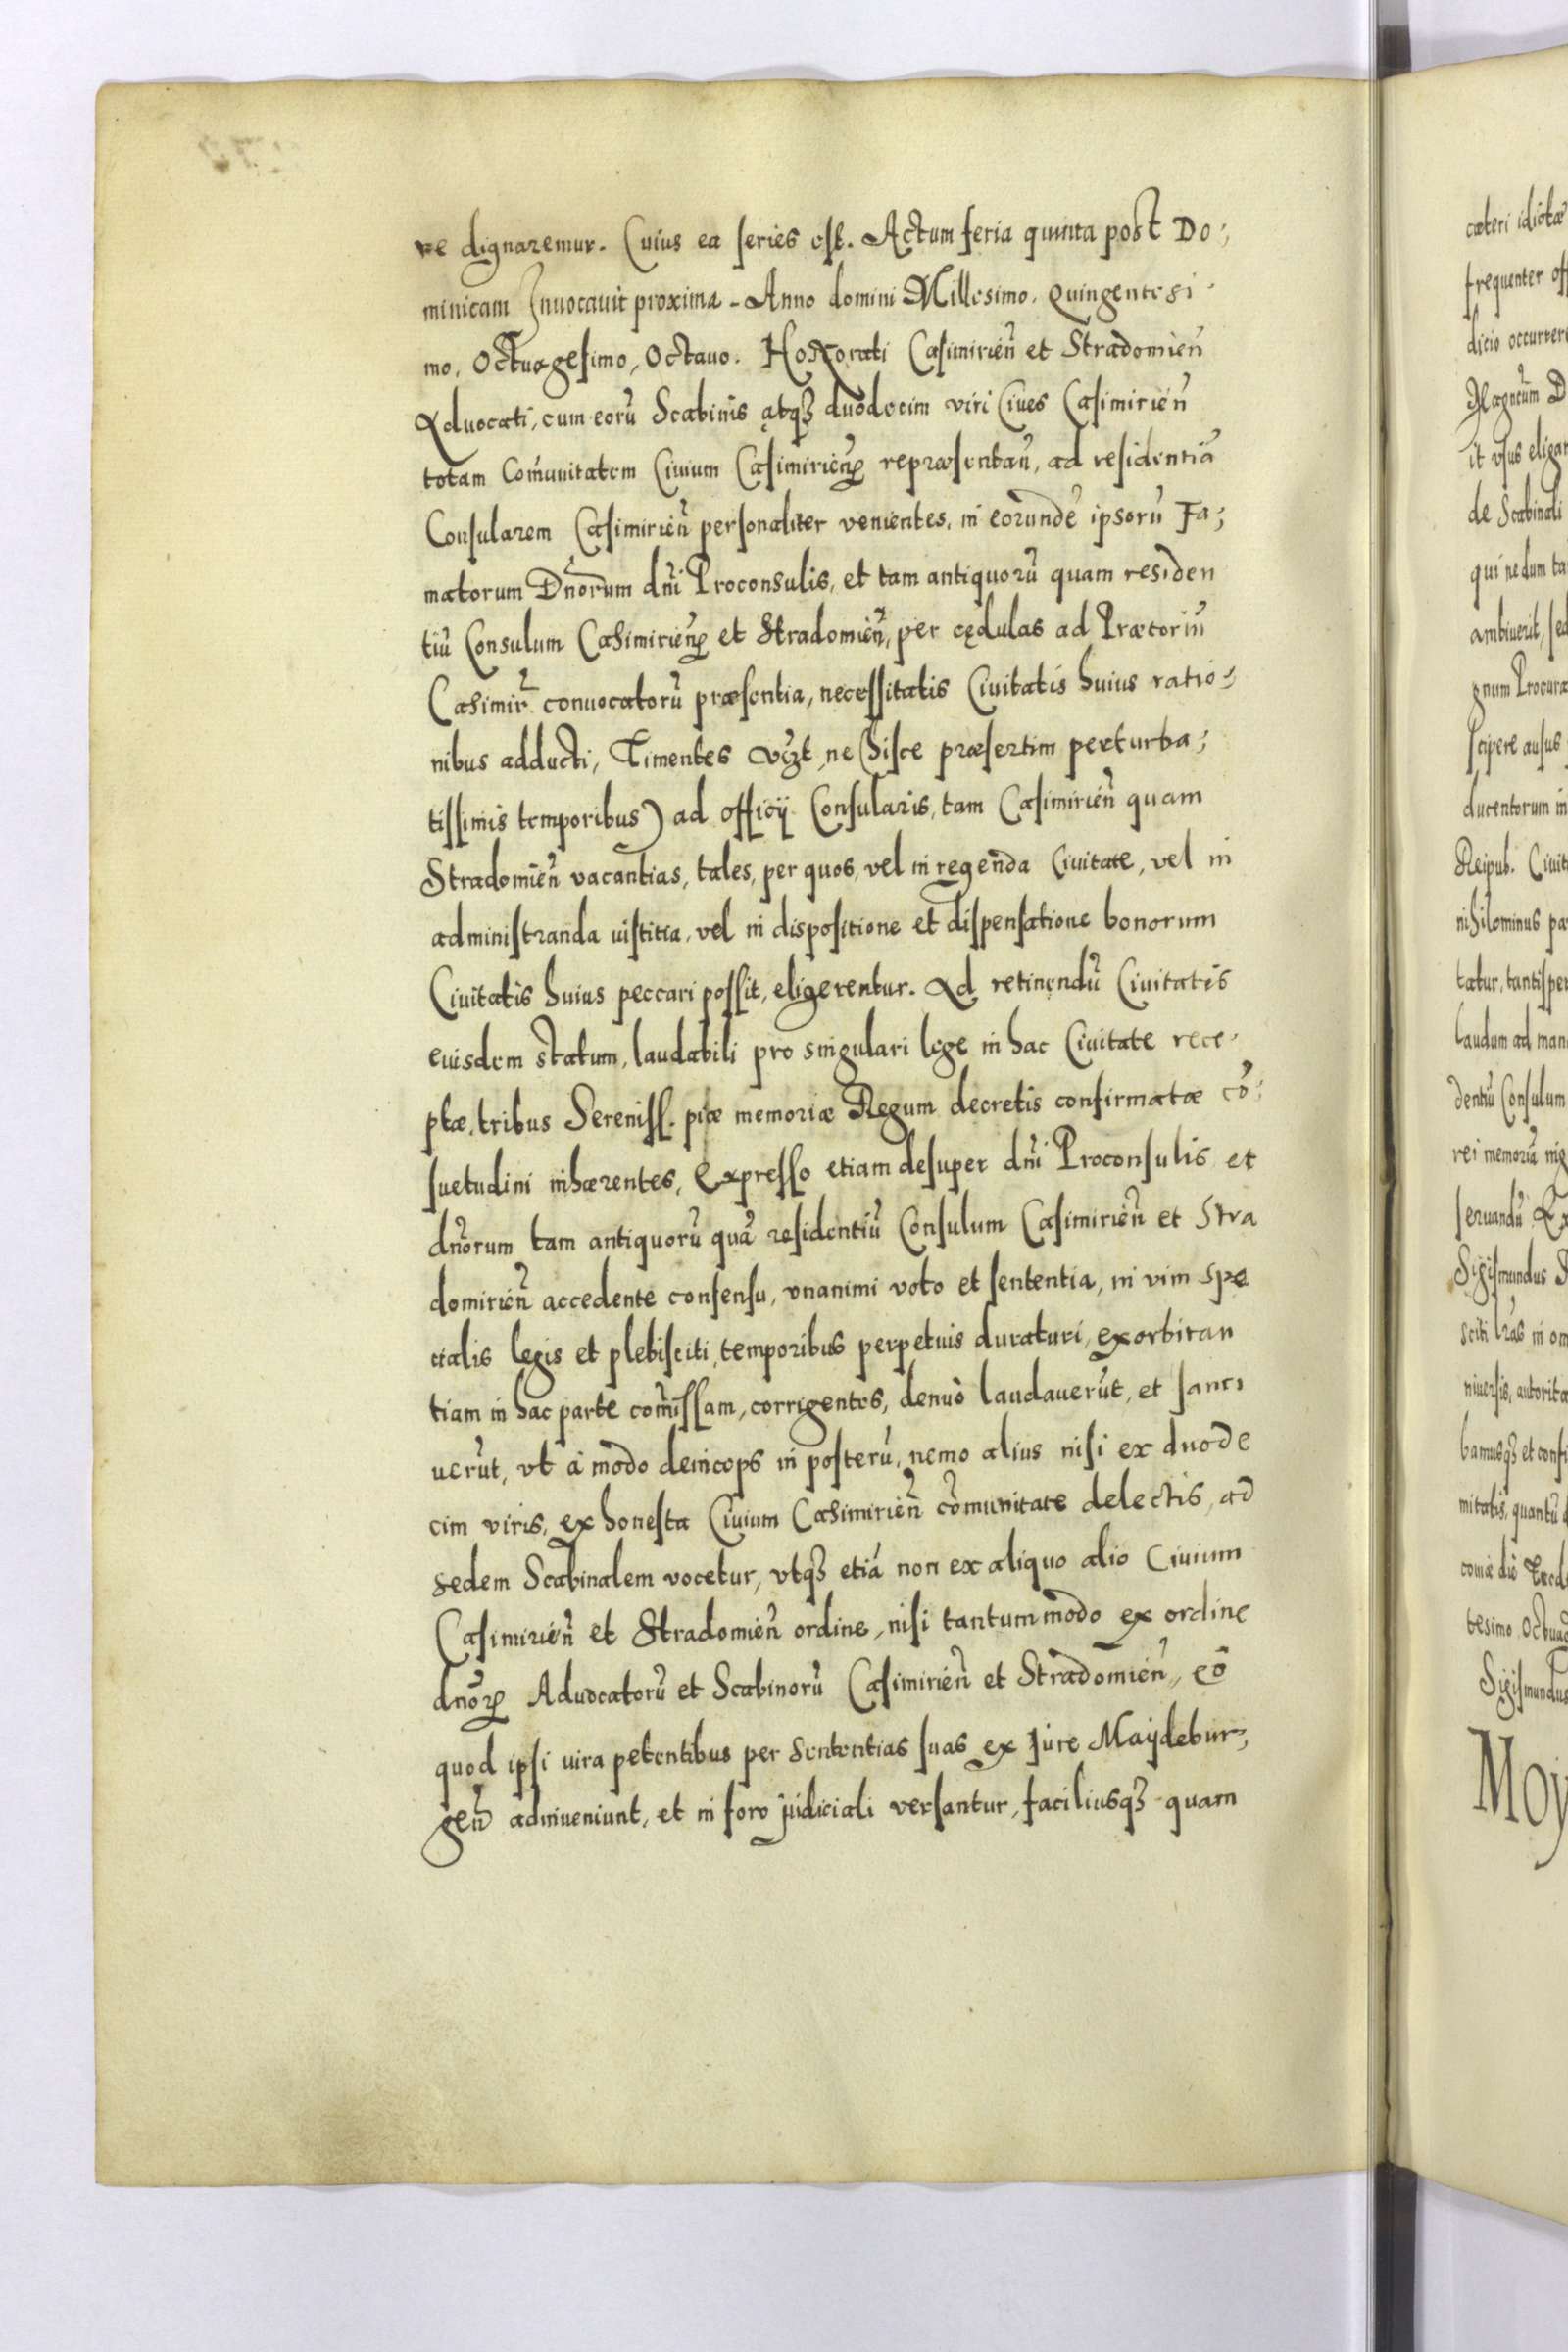 re dignaremur. Cuius ea series est. Actum feria quinta post Do;
minicam Inuocauit proxima - Anno domini Millesimo. Quingentesi-
mo, Octuagesimo, Octauo. Honorati Casimirień et Stradomień
Aduocati, cum eorū Scabinis atqꝫ duodecim viri Ciues Casimirień
totam Com̃unitatem Ciuium Casimirienꝝ repræsentań, ad residentiā
Consularem Casimirień personaliter venientes, in eorundē ipsorū Fa;
matorum Dnorum dńi Proconsulis, et tam antiquorū quam residen
tiū Consulum Casimirienꝝ et Stradomień, per cędulas ad Prætoriū
Casimir̃ conuocatorū præsentia, necessitatis Ciuitatis huius ratio-;
nibus adducti, Timentes vꝫt, ne (hisce præsertim perturba;
tissimis temporibus) ad officij Consularis, tam Casimirień quam
Stradomień vacantias, tales, per quos, vel in regenda Ciuitate, vel in
administranda iustitia, vel in dispositione et dispensatione bonorum
Ciuitatis huius peccari possit, eligerentur. Ad retinendū Ciuitatis
eiusdem statum, laudabili pro singulari lege in hac Ciuitate rece-
ptæ, tribus Sereniss. piæ memoriæ Regum decretis confirmatæ cō;
suetudini inhærentes, Expresso etiam desuper dńi Proconsulis et
dńorum tam antiquorū quā residentiū Consulum Casimirień et Stra
domirień accedente consensu, vnanimi voto et sententia, in vim spe
cialis legis et plebisciti, temporibus perpetuis duraturi, exorbitan
tiam in hac parte com̃issam, corrigentes, denuò laudauerūt, et sanci
uerūt, vt à modo deinceps in posterū, nemo alius nisi ex duode
cim viris, ex honesta Ciuium Casimirień cōmunitate delectis, ad
sedem Scabinalem vocetur, vtqꝫ etiā non ex aliquo alio Ciuium
Casimirień et Stradomień ordine, nisi tantummodo ex ordine
dnōꝝ Aduocatorū et Scabinorū Casimirień et Stradomień, eō
quod ipsi iura petentibus per Sententias suas ex Jure Maydebur-;
geń adinueniunt, et in foro judiciali versantur, faciliusqꝫ quam
cæteri idiotæ
frequenter
dicio
Magnūm
it vsus
de Scabinali
qui nedum
ambiuerit,
gnum
scipere ausus
ducentorum in
Reipub.
nihilominus
tatur, tantisper
laudum ad
dentiū Consulum
rei memoriā
seruandū
Sigismundus
sciti lr̃as in
niuersis,
bamusqꝫ et
mitatis, quantū
die
tesimo
Sigismundus
Moy